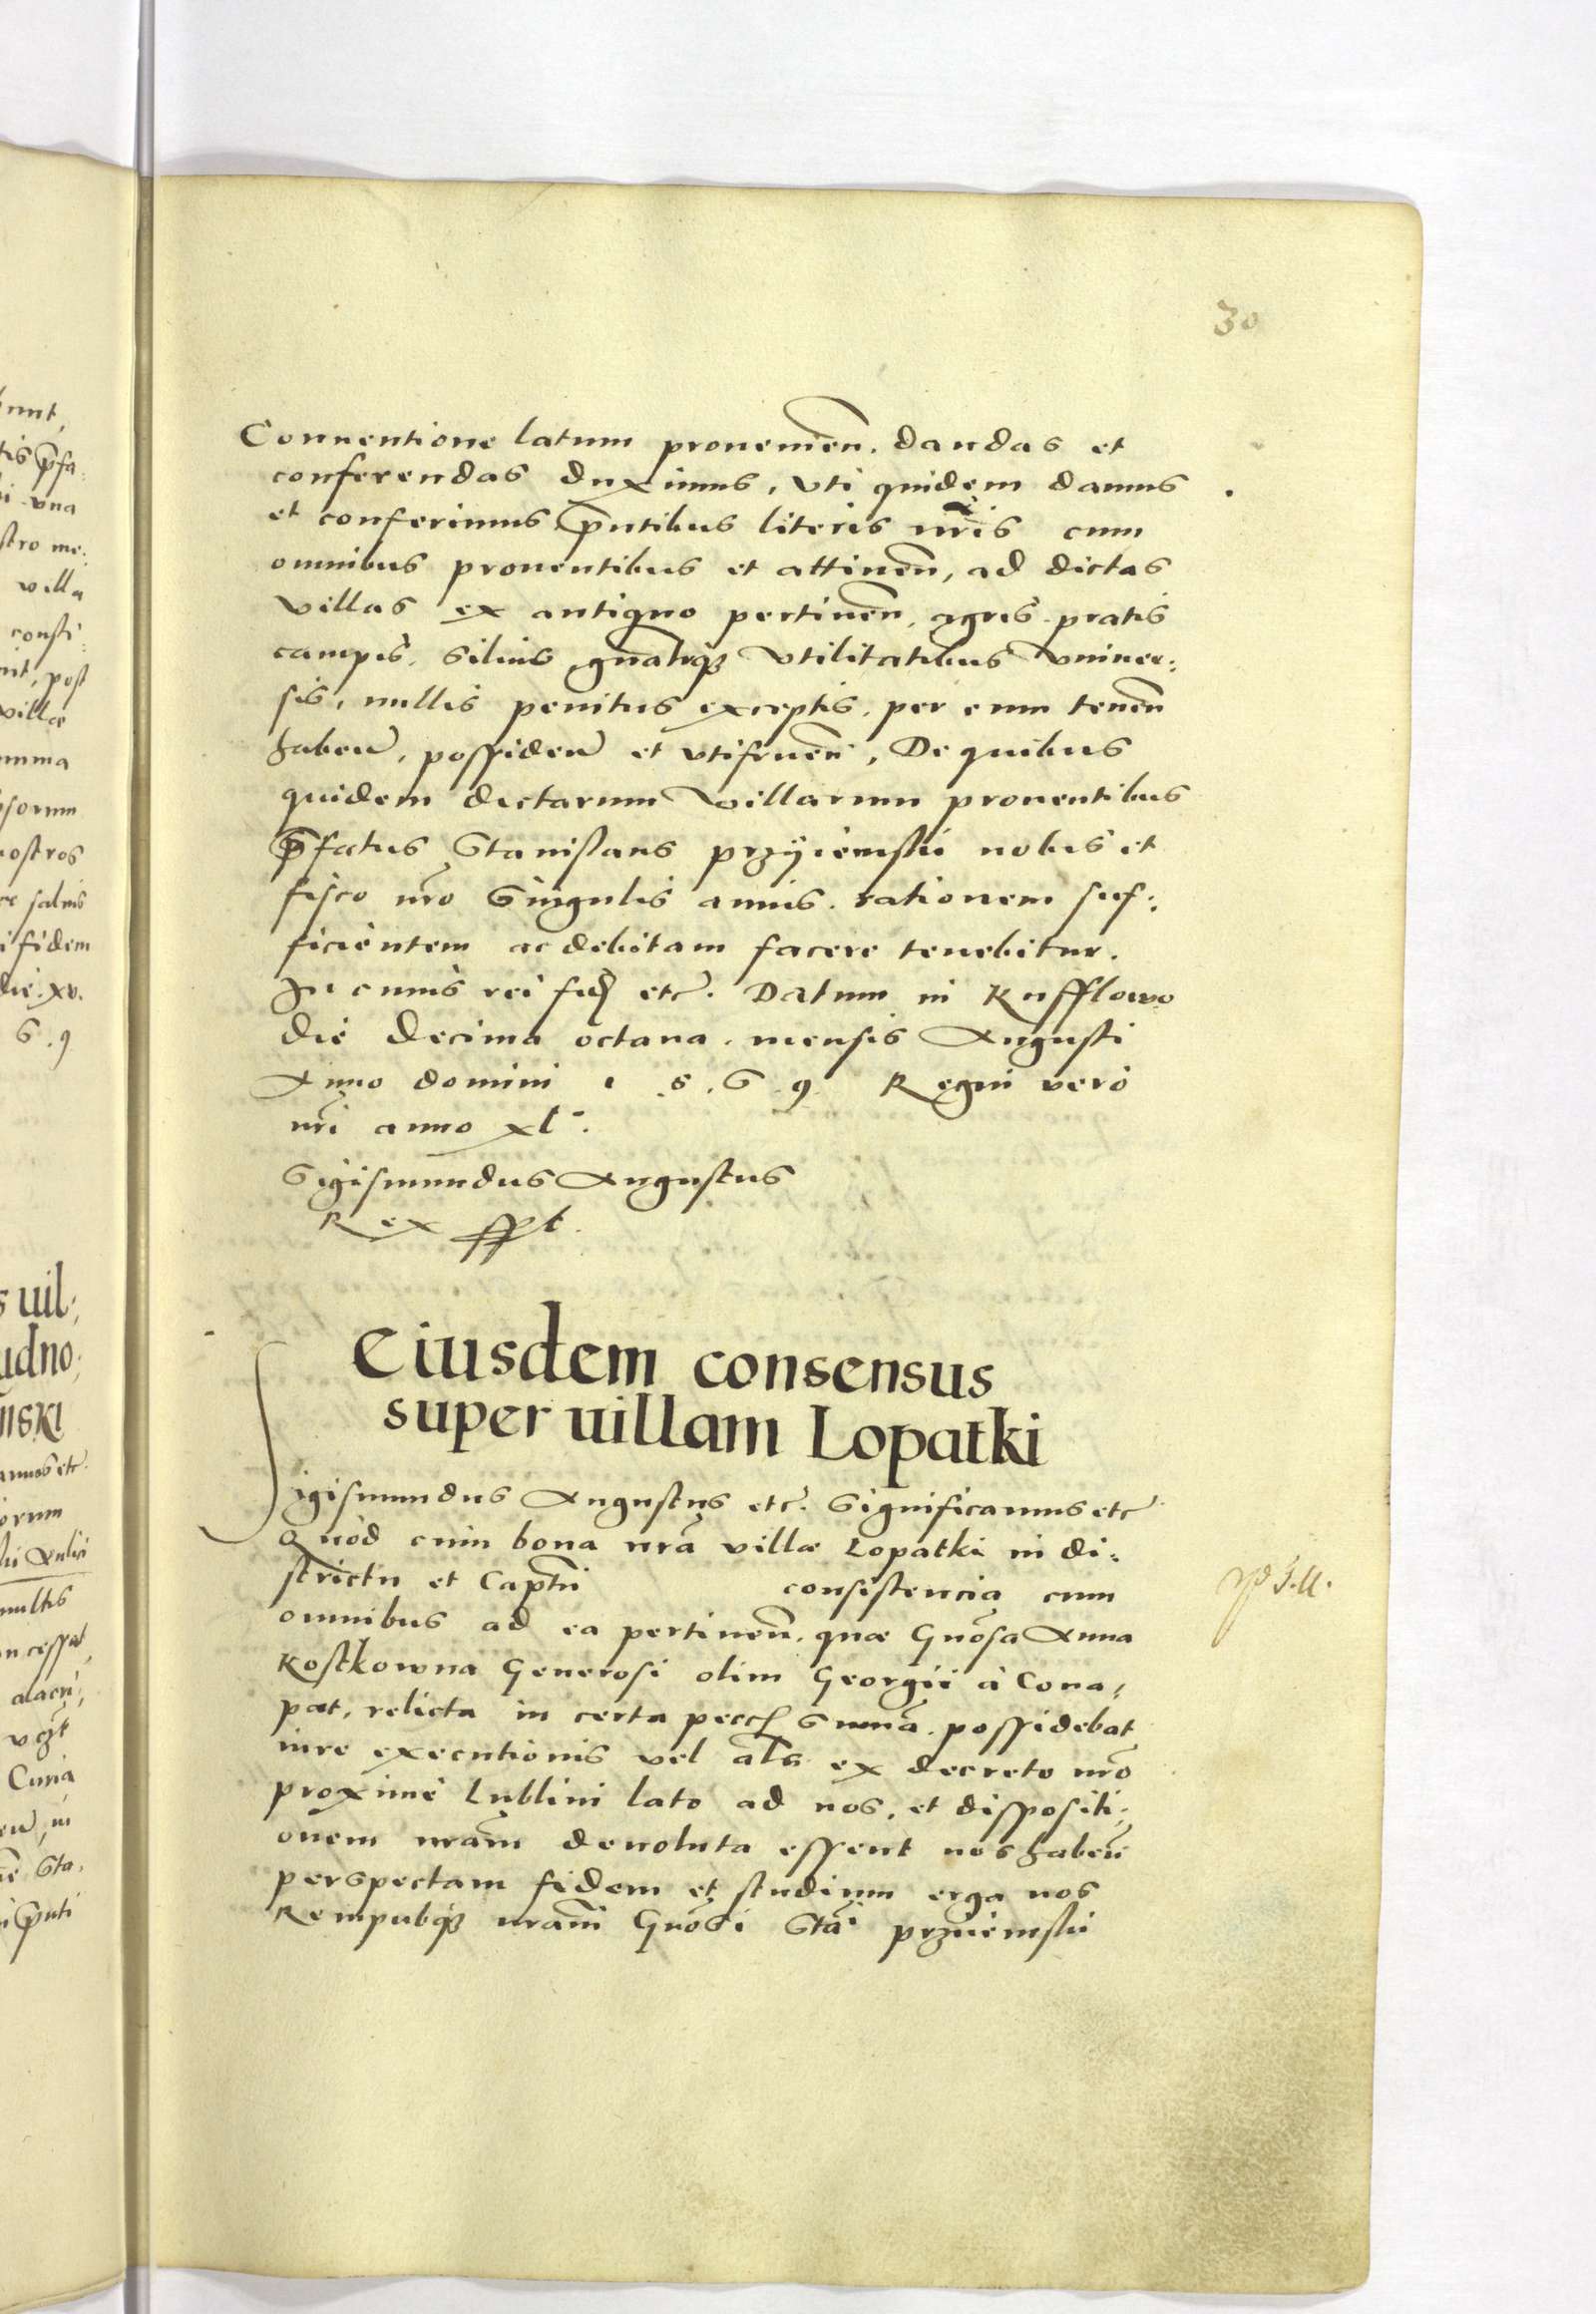 30
Conuentione latum prouenien. dandas et
conferendas duximus, vti quidem damus
et conferimus pntibus literis nris cum
omnibus prouentibus et attinen, ad dictas
villas ex antiquo pertinen, agris pratis
campis, siluis gnaliq3 vtilitatibus vniuer:
sis, nullis penitus exceptis, per eum tenen
haben, possiden et vtifruen, De quibus
quidem dictarum villarum prouentibus
pfatus Stanislaus przÿiemskii nobis et
fisco nro singulis annis rationem suf:
ficientem ac debitam facere tenebitur.
In cuius rei fid etc. Datum in Knffłowo
die decima octaua mensis Augusti
Anno domini 1 5. 6 9 Regni vero
nri anno xl:
Sigismundus Augustus
Rex sspt.
Eiusdem consensus
super uillam Lopatki
Sigismundus Augustus etc. Significamus etc
Quod cum bona nra villæ Lopatki in di:
strictu et Captu consistencia cum
omnibus ad ea pertinen. quæ Gnosa Anna
Kostkowna Generosi olim Georgii à Cona:
pat, relicta in certa pecc summa possidebat
iure executionis vel als ex decreto nro
proxime Lublini lato ad nos, et dispositi:
onem nram deuoluta essent nos haben
perspectam fidem et studium erga nos
Rempubq3 nram Gnosi Stai przÿiemskii
bunt,
tis pfa:
i vna
stro me:
villa
consti:
nit, post
villæ
umma
psorum
nostros
re saluis
i fidem
die . xv.
6 . 9
s uil:
udno:
nski
amus etc.
orum
multis
Curia
in
Sta.
pnti